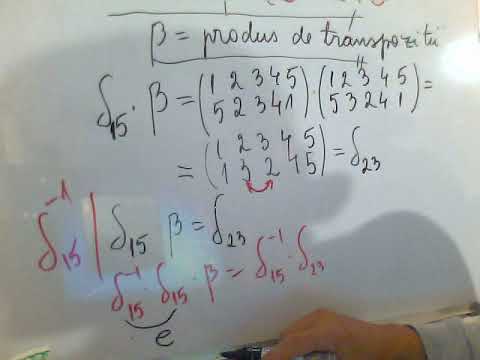 β = produs de transpozitii
δ₁₅ · β = (1 2 3 4 5 / 5 2 3 4 1) · (1 2 3 4 5 / 5 3 2 4 1) =
= (1 2 3 4 5 / 1 3 2 4 5) = δ₂₃
δ₁₅⁻¹ | δ₁₅ β = δ₂₃
δ₁₅⁻¹ · δ₁₅ · β = δ₁₅⁻¹ · δ₂₃
e